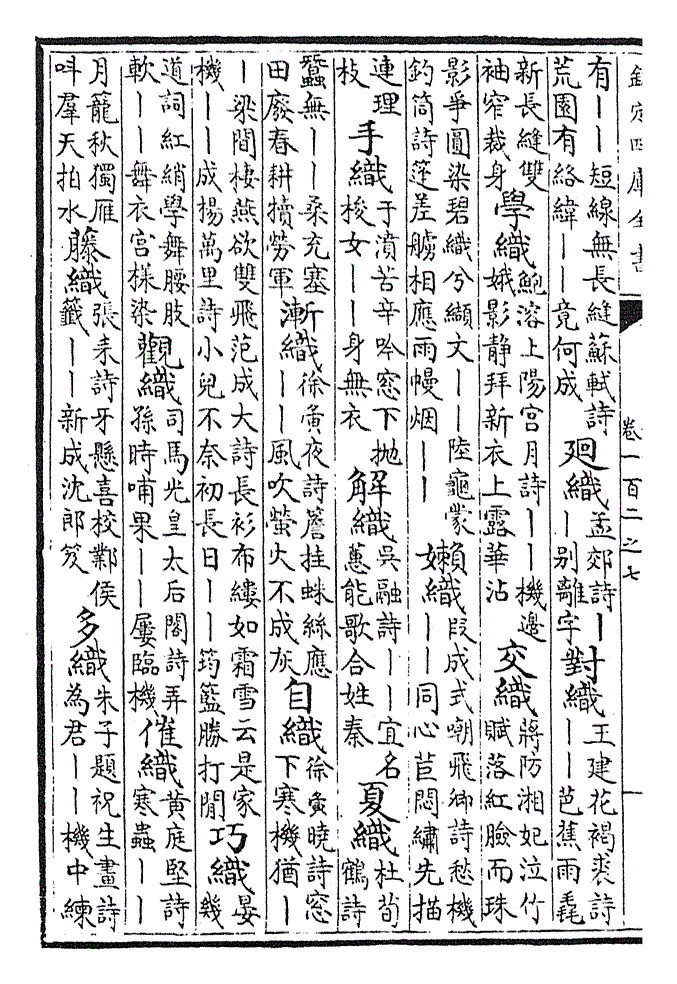 欽定四庫全書
卷一百二之七
有｜｜短線無長縫蘇軾詩荒園有絡緯｜｜竟何成 廻織 孟郊詩｜｜别離字 對織 王建花褐裘詩｜｜芭蕉雨毳
新長縫雙袖窄裁身 學織 鮑溶上陽宮月詩｜｜機邊娥影静拜新衣上露華沾 交織 蔣防湘妃泣竹賦落紅臉而珠
影爭圓染碧織兮纈文｜｜ 陸龜蒙釣筒詩篷差艣相應雨幔烟｜｜ 嬾織 段成式嘲飛卿詩愁機｜｜同心苣悶繡先描
連理枝 手織 于濆苦辛吟窓下抛梭女｜｜身無衣 解織 吳融詩｜｜宜名蕙能歌合姓秦 夏織 杜荀鶴詩
蠶無｜｜桑充塞田廢春耕犢勞軍 漸織 徐夤夜詩簷挂蛛絲應｜｜風吹螢火不成灰 自織 徐夤曉詩窓下寒機猶｜
｜梁間棲燕欲雙飛范成大詩長衫布縷如霜雪云是家機｜｜成楊萬里詩小兒不奈初長日｜｜筠籃勝打閒 巧織 晏幾
道詞紅綃學舞腰肢軟｜｜舞衣宮様染 觀織 司馬光皇太后閣詩弄孫時哺果｜｜屢臨機 催織 黄庭堅詩寒蟲｜｜
月籠秋獨雁呌羣天拍水 藤織 張耒詩牙懸喜校鄴侯籖｜｜新成沈郎笈 多織 朱子題祝生畫詩為君｜｜機中練